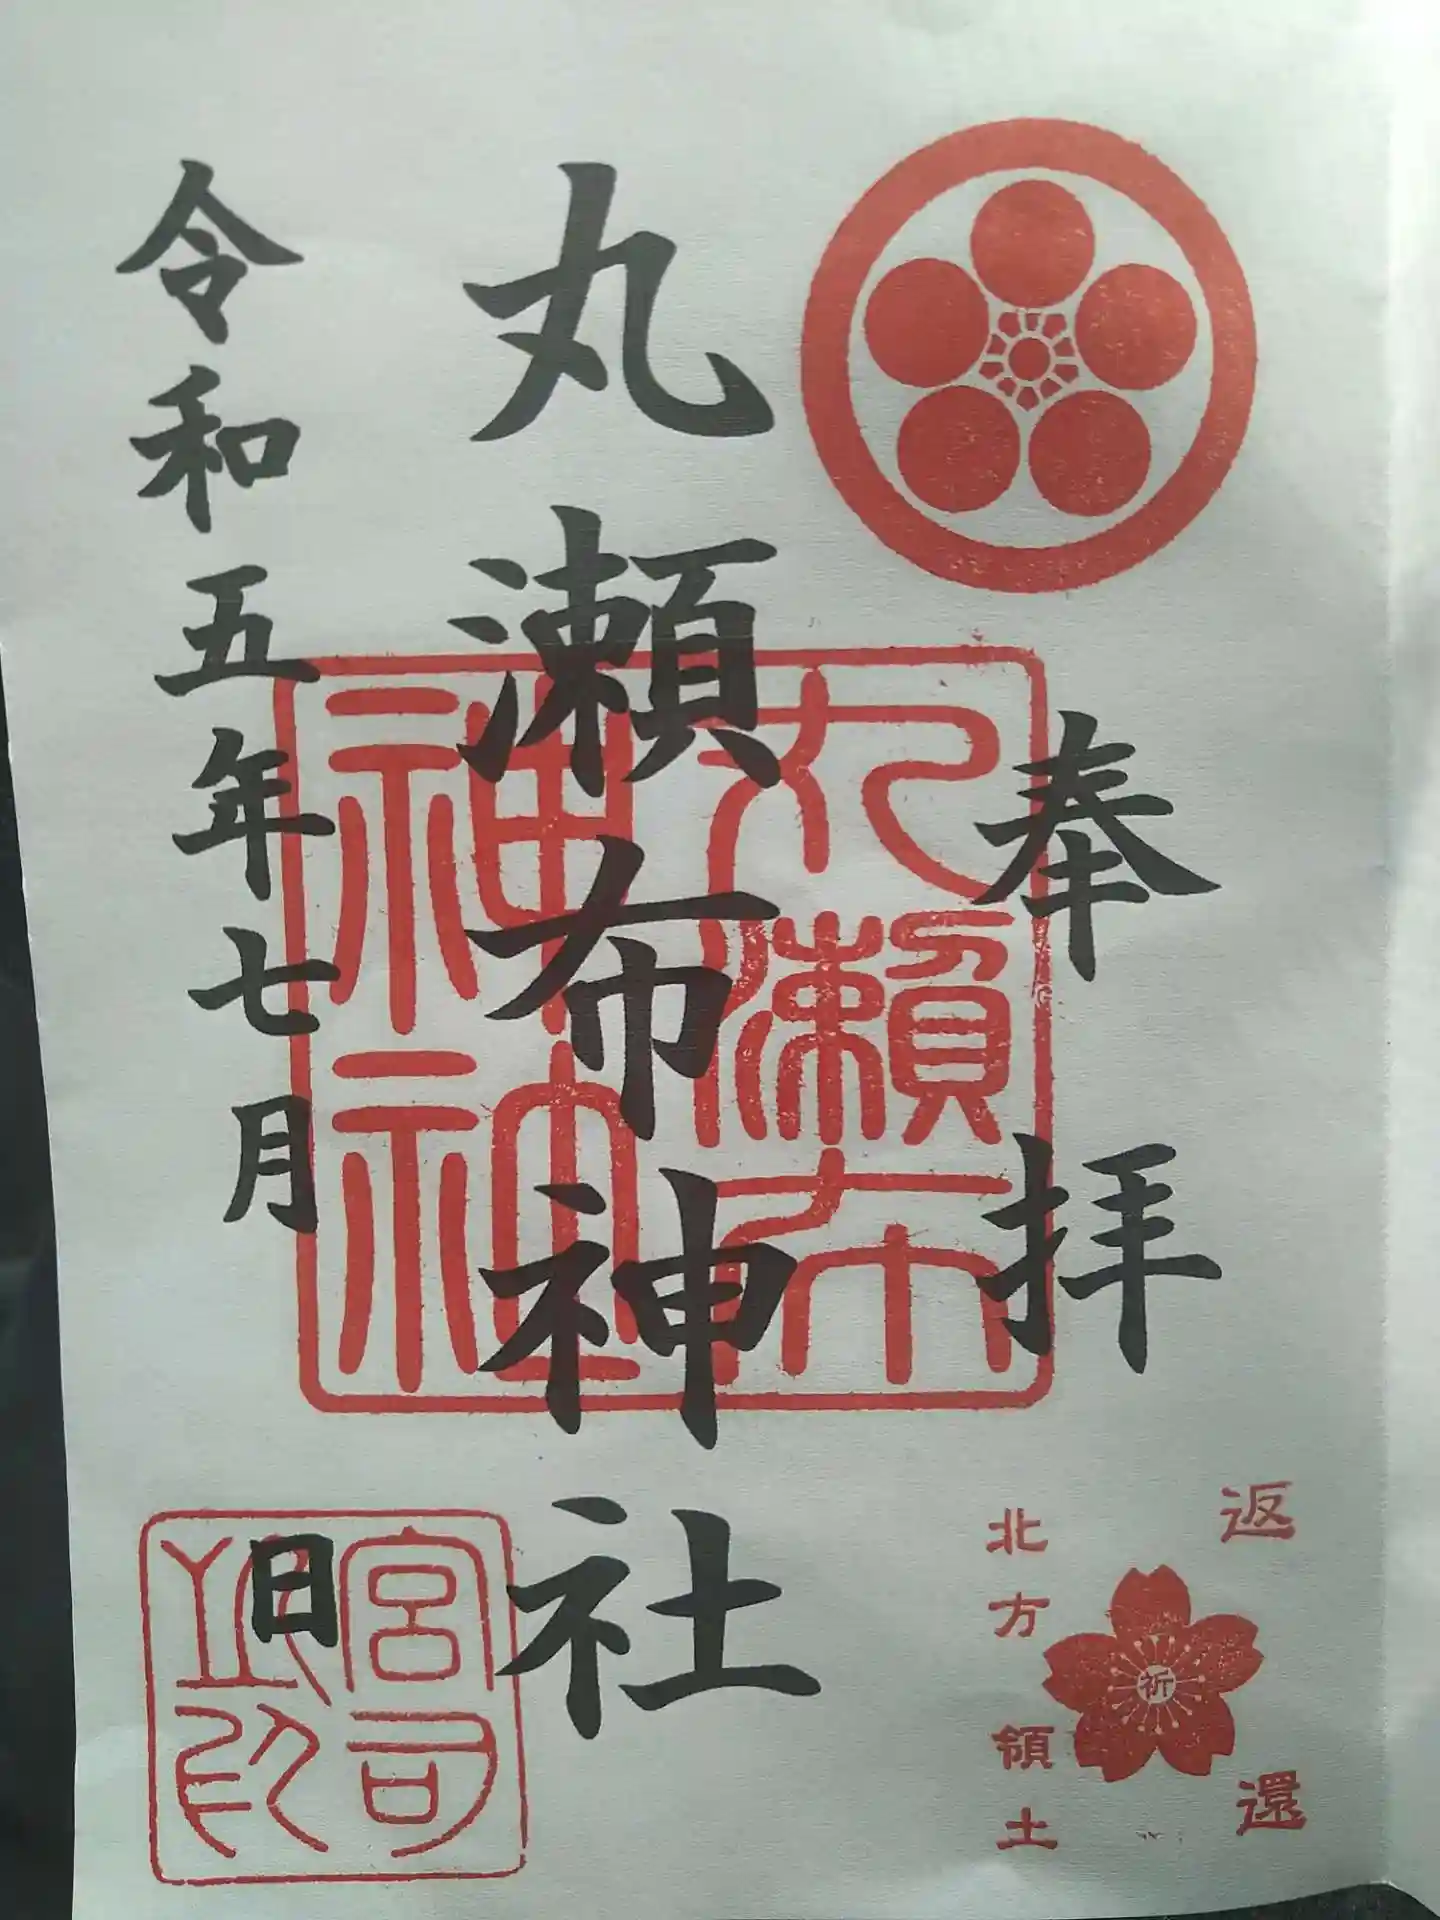 奉拝
丸瀬布神社
令和五年七月　日
丸瀬布
神社
宮司
之印
祈
返還
北方領土